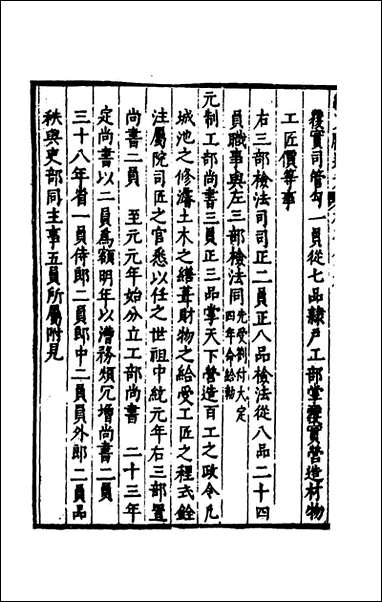 覆實司管勾一員從七品隸戶工部掌覆實營造材物
工匠價等事
右三部檢法司司正二員正八品檢法從八品二十四
員職事與左三部檢法同先受劄付大定四年命給勅
元制工部尚書三員正三品掌天下營造百工之政令凡
城池之修濬土木之繕葺財物之給受工匠之程式銓
注局院司匠之官悉以任之世祖中統元年右三部置
尚書二員 至元元年始分立工部尚書 二十三年
定尚書以二員為額明年以漕務煩冗增尚書二員
三十八年省一員侍郎二員郎中二員員外郎二員品
秩與吏部同主事五員所屬附見